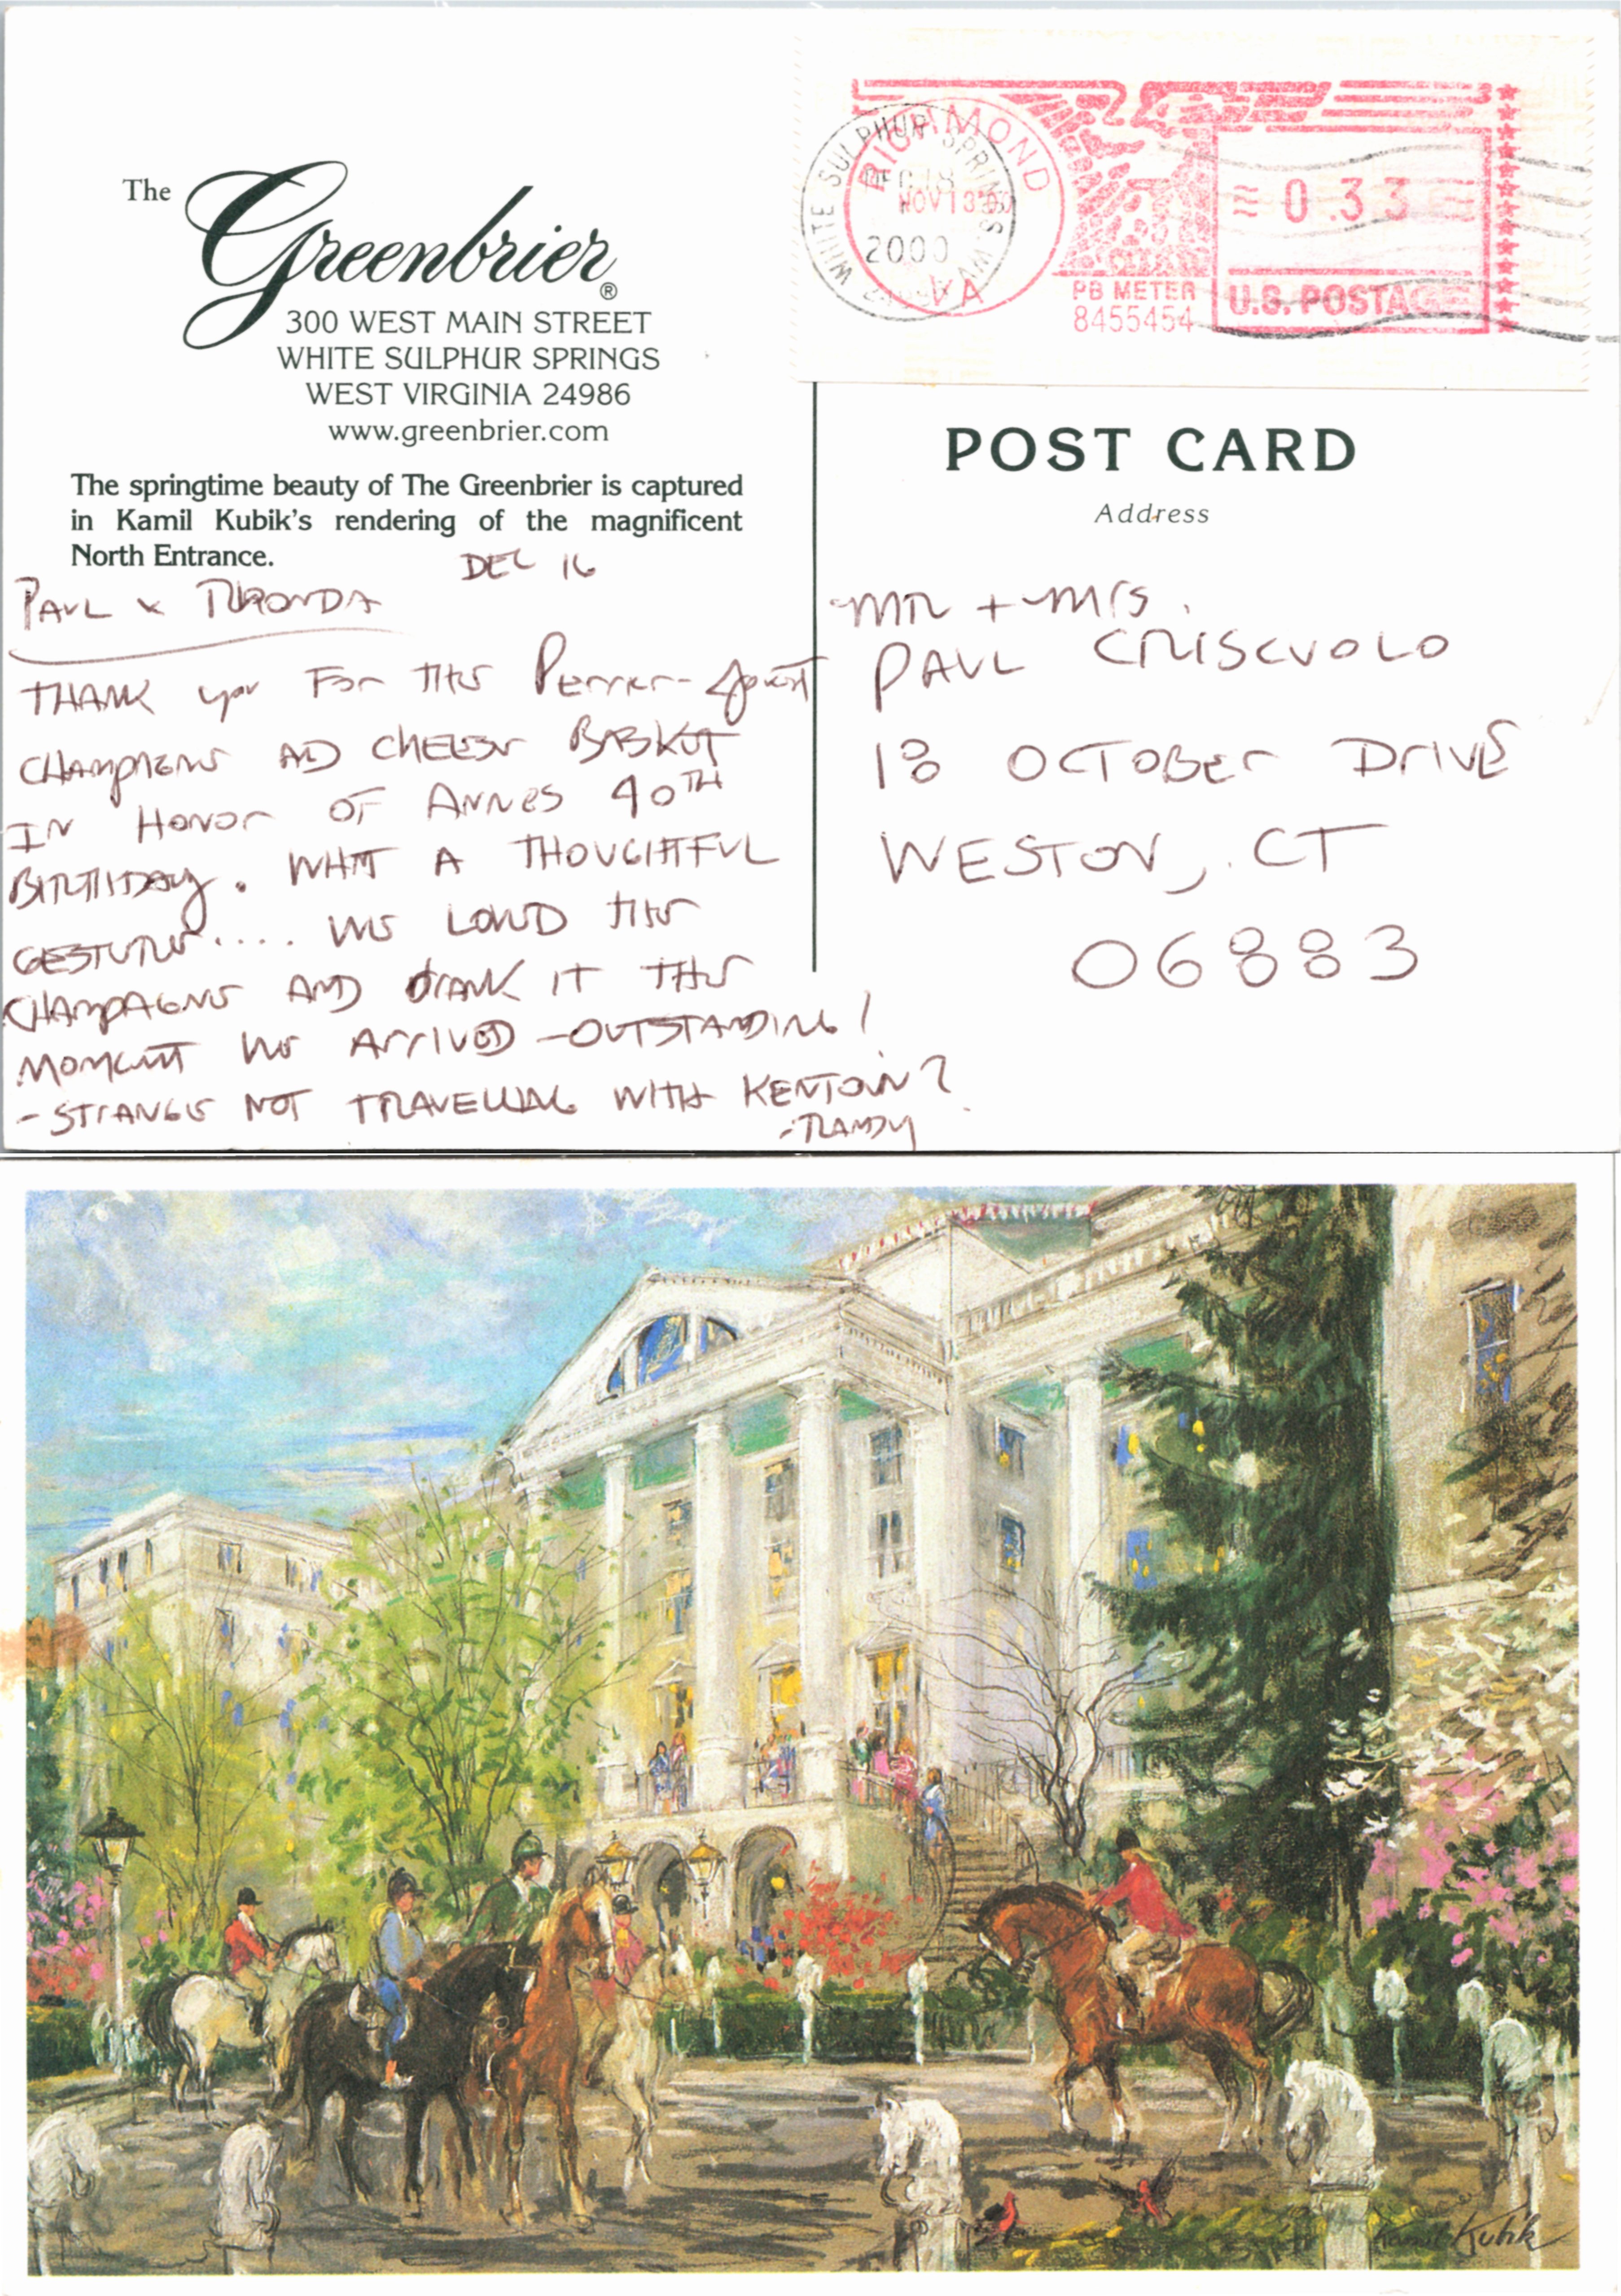 The
Greenbrier®
300 WEST MAIN STREET
WHITE SULPHUR SPRINGS
WEST VIRGINIA 24986
www.greenbrier.com
The springtime beauty of The Greenbrier is captured
in Kamil Kubik's rendering of the magnificent
North Entrance.
DEC 16
PAUL & RHONDA
THANK you For THE Perrier-Jouet
CHAMPAGNE AND CHEESE BASKET
IN HONOR OF ANNES 40TH
BIRTHDAY. WHAT A THOUGHTFUL
GESTURE.... WE LOVED THE
CHAMPAGNE AND DRANK IT THE
MOMENT WE ARRIVED - OUTSTANDING!
- STRANGE NOT TRAVELLING WITH KENTOWN?
- RANDY
WHITE SULPHUR SPRINGS, WV
DEC 18
2000
RICHMOND
NOV 13
VA
PB METER
8455454
0.33
U.S. POSTAGE
POST CARD
Address
MR + Mrs.
PAUL CRISCUOLO
18 OCTOBER DRIVE
WESTON, CT
06883
Kamil Kubik